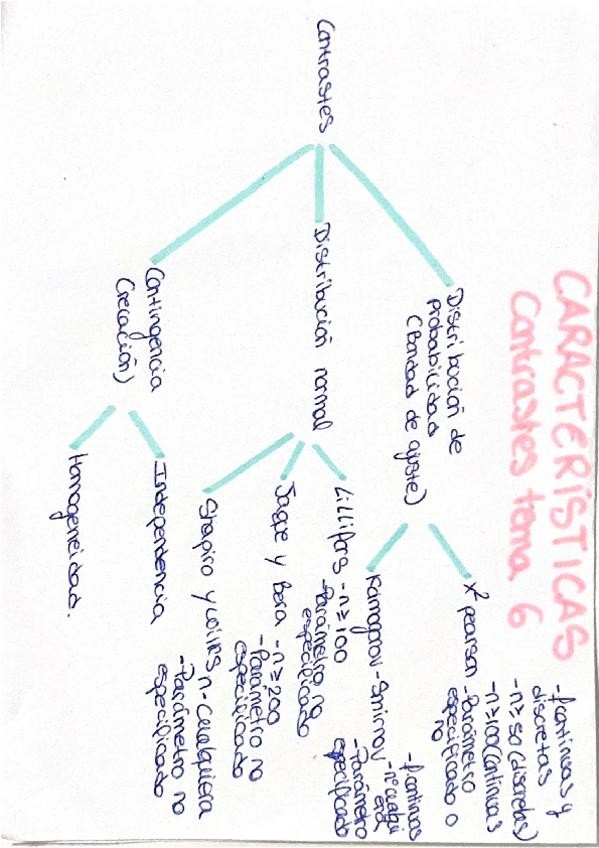 CARACTERÍSTICAS
Contrastes tema 6
Contrastes
Distribución de
probabilidad
(Bondad de ajuste)
X² pearson
-f continuas y
discretas
-n ≥ 50 (discretas)
-n ≥ 100 (continuas
-Parámetro
especificado o
no
Kolmogorov-Smirnov
-f continuas
-nº cualqui
era
-Parámetro
especificado
Distribución normal
Lillifors
-n ≥ 100
-Parámetro no
especificado
Jaque y Bera
-n ≥ 200
-Parámetro no
especificado
Shapiro y wilks
n-cualquiera
-Parámetro no
especificado
Contingencia
(relación)
Independencia
Homogeneidad.